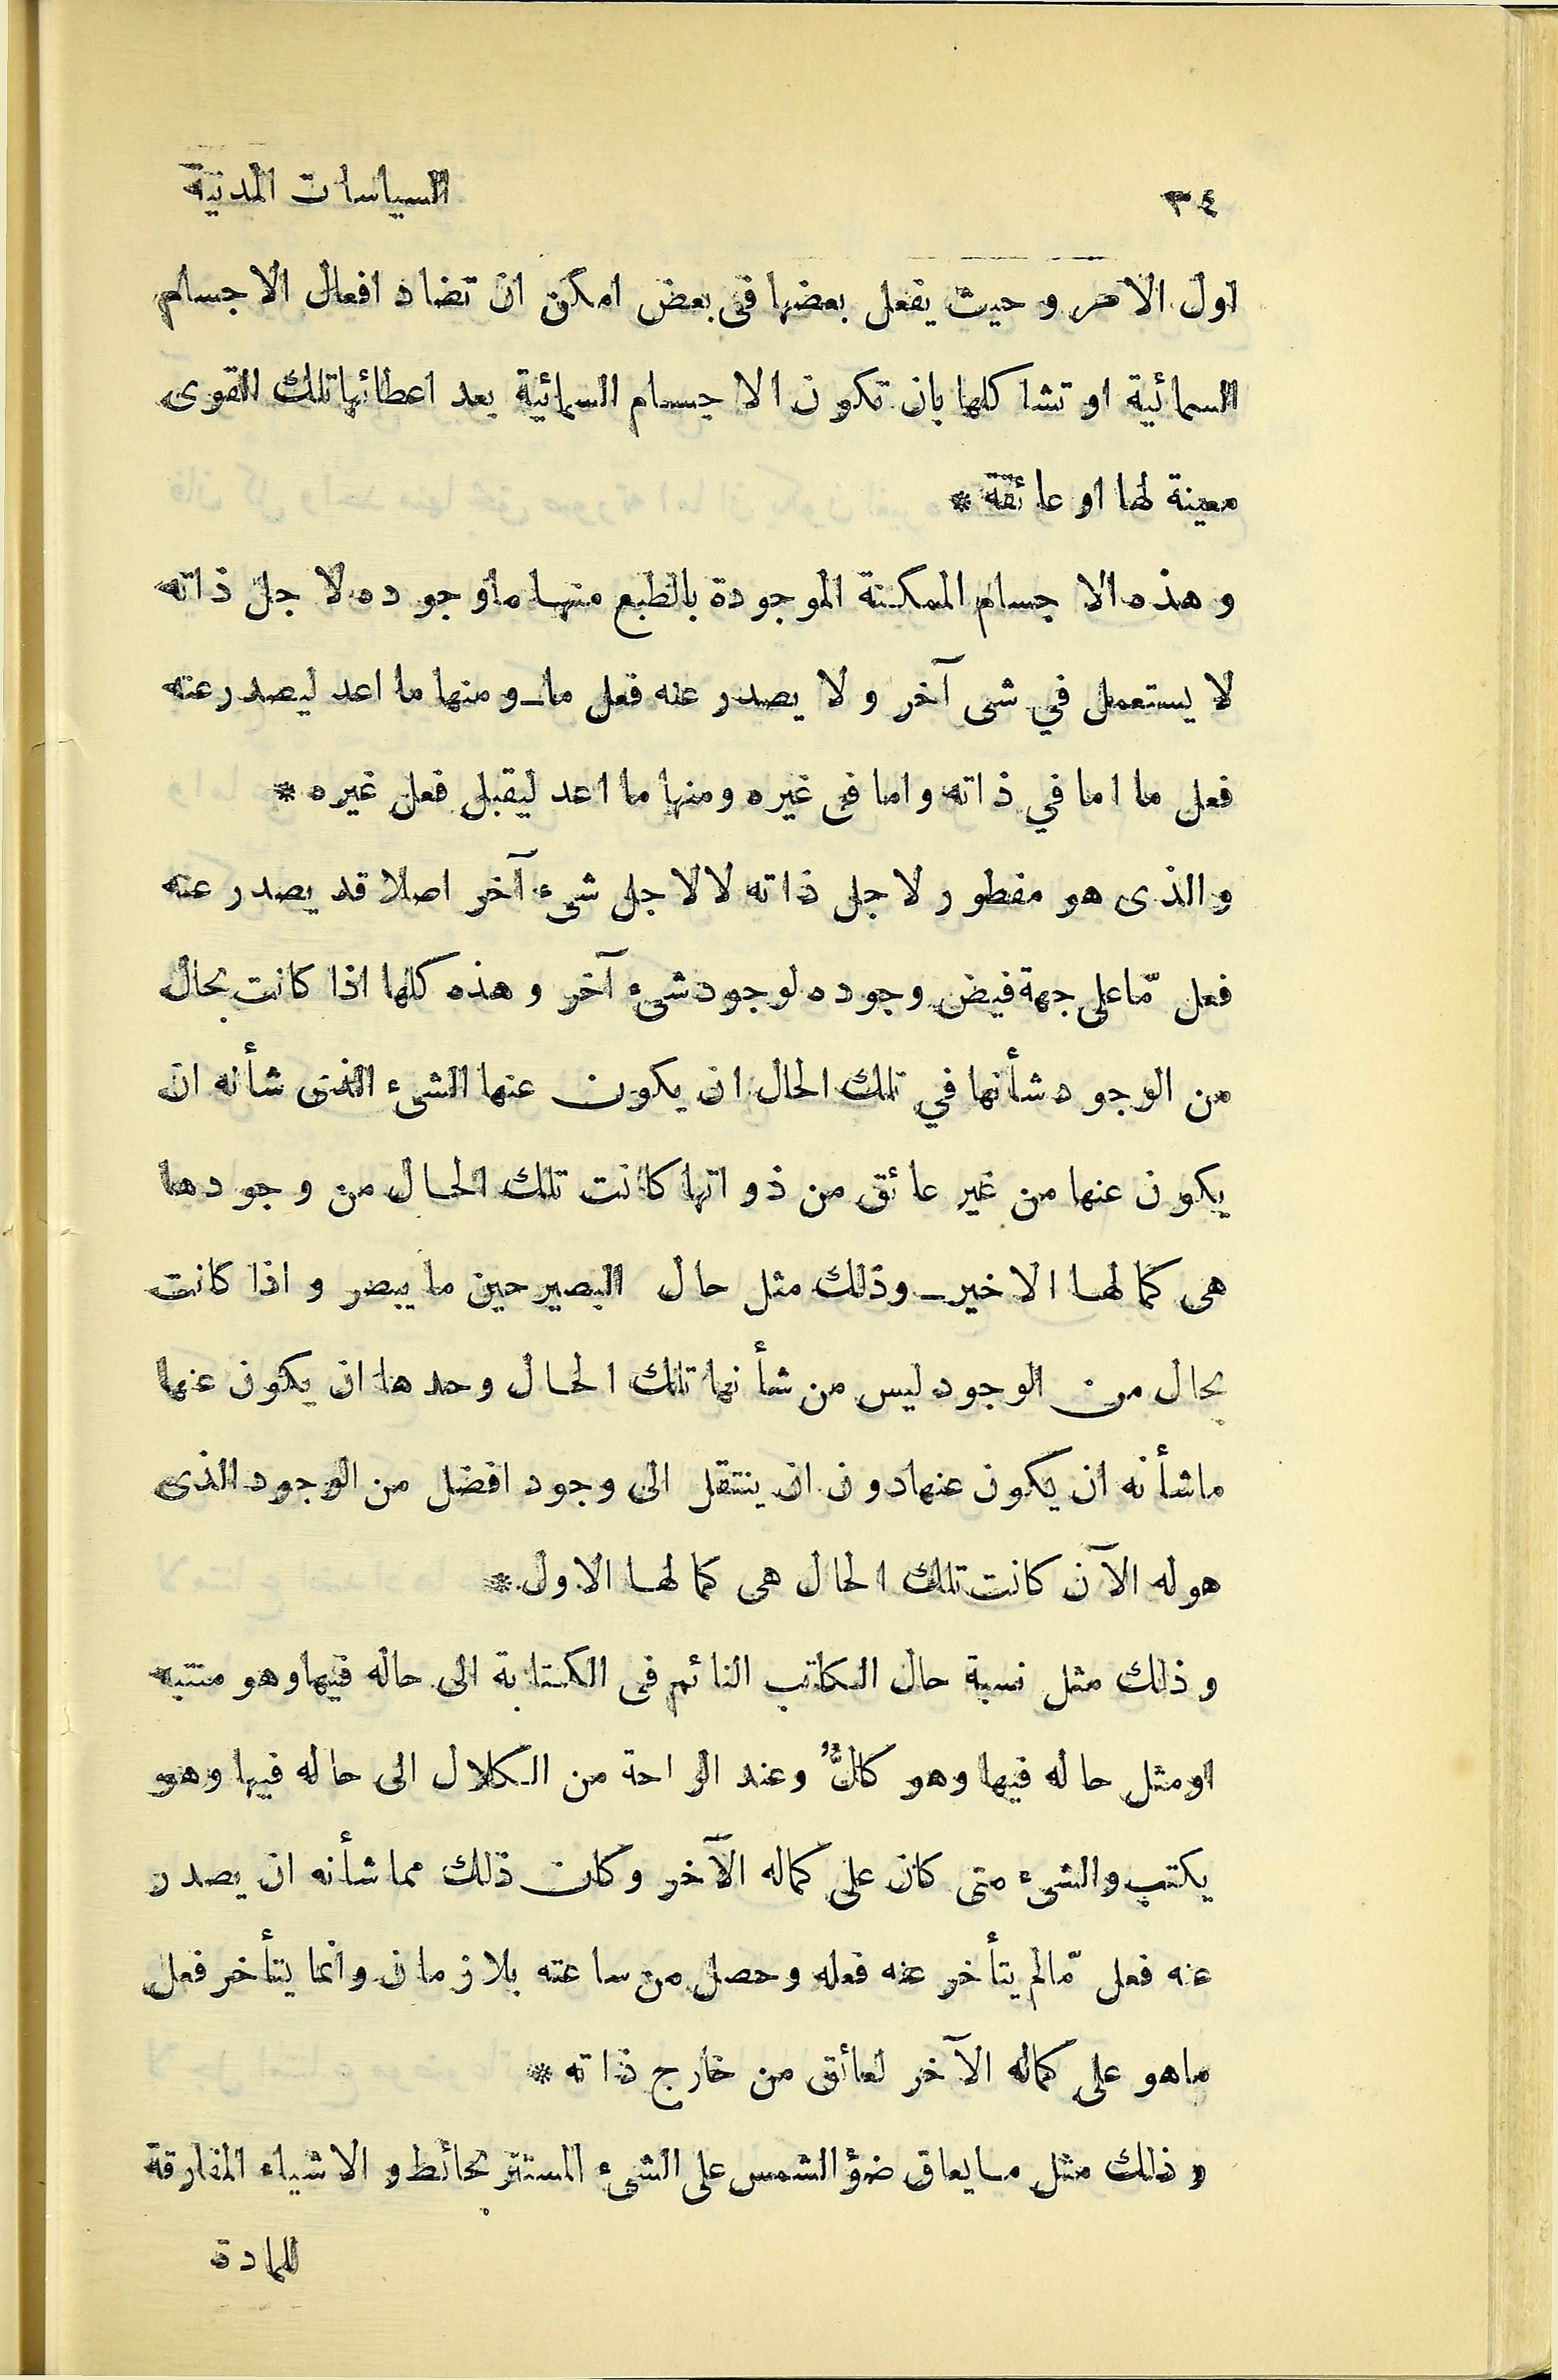 ٣٤ السياسات المدنية
اول الامر و حيث يفعل بعضها فى بعض امكن ان تضاد افعال الاجسام
السمائية او تشاكلها بان تكون الاجسام السمائية بعد اعطائها تلك القوى
معينة لها او عائقة *
و هذه الاجسام الممكنة الموجودة بالطبع منها ماوجوده لاجل ذاته
لا يستعمل في شى آخر و لا يصدر عنه فعل ما ـ و منها ما اعد ليصدر عنه
فعل ما اما في ذاته و اما فى غيره و منها ما اعد ليقبل فعل غيره *
و الذى هو مفطور لاجل ذاته لا لاجل شىء آخر اصلا قد يصدر عنه
فعل مّا على جهة فيض وجوده لوجود شىء آخر و هذه كلها اذا كانت بحال
من الوجود شأنها في تلك الحال ان يكون عنها الشىء الذى شأنه ان
يكون عنها من غير عائق من ذواتها كانت تلك الحال من وجودها
هى كمالها الاخير ـ وذلك مثل حال البصير حين ما يبصر و اذا كانت
بحال من الوجود ليس من شأنها تلك الحال وحدها ان يكون عنها
ماشأنه ان يكون عنهادون ان ينتقل الى وجود افضل من الوجود الذى
هوله الآن كانت تلك الحال هى كمالها الاول *
و ذلك مثل نسبة حال الكاتب النائم فى الكتابة الى حاله فيهاوهو منتبه
اومثل حاله فيها وهو كالٌّ وعند الراحة من الكلال الى حاله فيها وهو
يكتب والشىء متى كان على كماله الآخر وكان ذلك مما شأنه ان يصدر
عنه فعل مّالم يتأخر عنه فعله وحصل من ساعته بلازمان وانما يتأخر فعل
ماهو على كماله الآخر لعائق من خارج ذاته *
و ذلك مثل مايعاق ضؤ الشمس على الشىء المستتر بحائط و الاشياء المفارقة
للمادة